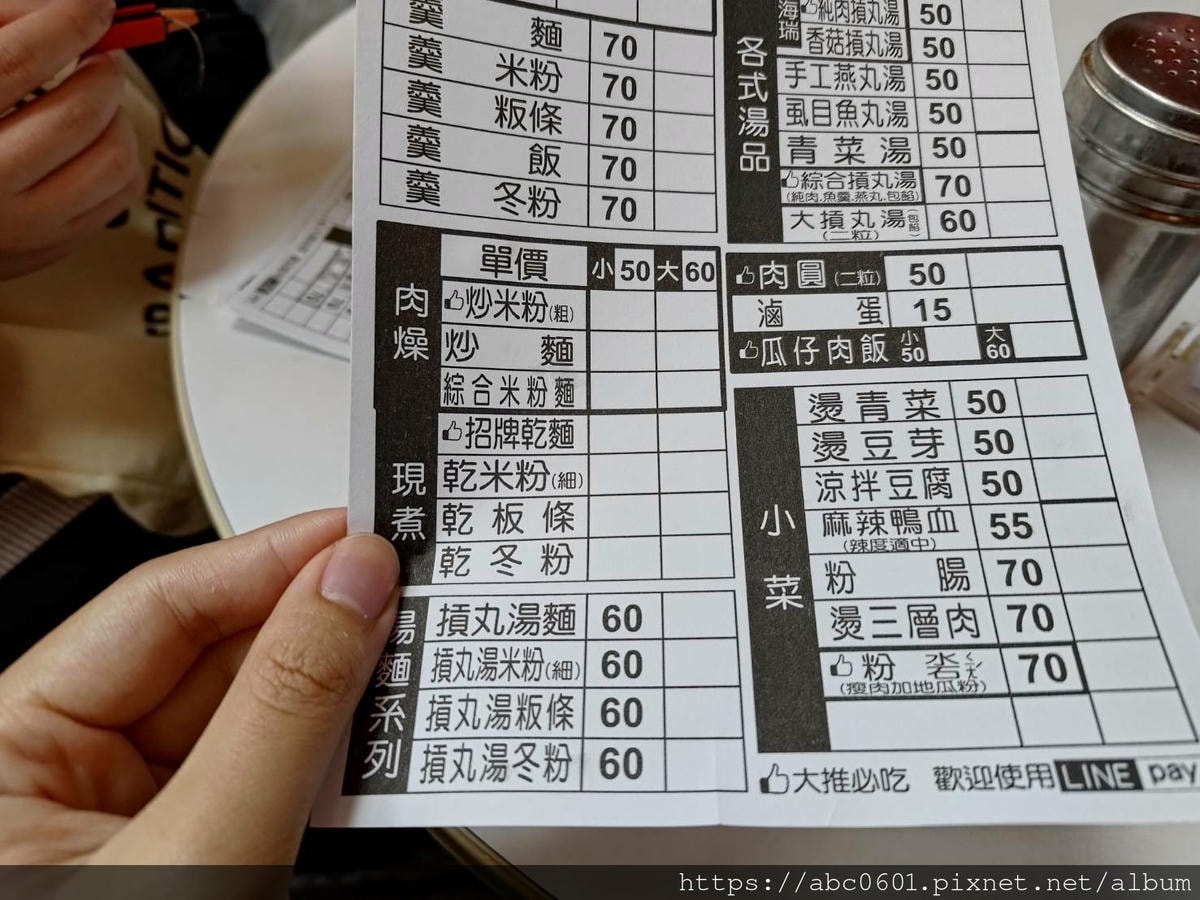 羹 麵 70
羹 米粉 70
羹 粄條 70
羹 飯 70
羹 冬粉 70
肉燥 現煮
單價 小 50 大 60
炒米粉(粗)
炒 麵
綜合米粉麵
招牌乾麵
乾米粉(細)
乾板條
乾冬粉
湯麵系列
摃丸湯麵 60
摃丸湯米粉(細) 60
摃丸湯粄條 60
摃丸湯冬粉 60
各式湯品
海瑞
純肉摃丸湯 50
香菇摃丸湯 50
手工燕丸湯 50
虱目魚丸湯 50
青菜湯 50
綜合摃丸湯 70
(純肉.魚羹.燕丸.包餡)
大摃丸湯(包餡) 60
(二粒)
肉圓(二粒) 50
滷 蛋 15
瓜仔肉飯 小 50 大 60
小菜
燙青菜 50
燙豆芽 50
涼拌豆腐 50
麻辣鴨血 55
(辣度適中)
粉 腸 70
燙三層肉 70
粉 70
(瘦肉加地瓜粉)
大推必吃 歡迎使用 LINE pay
https://abc0601.pixnet.net/album